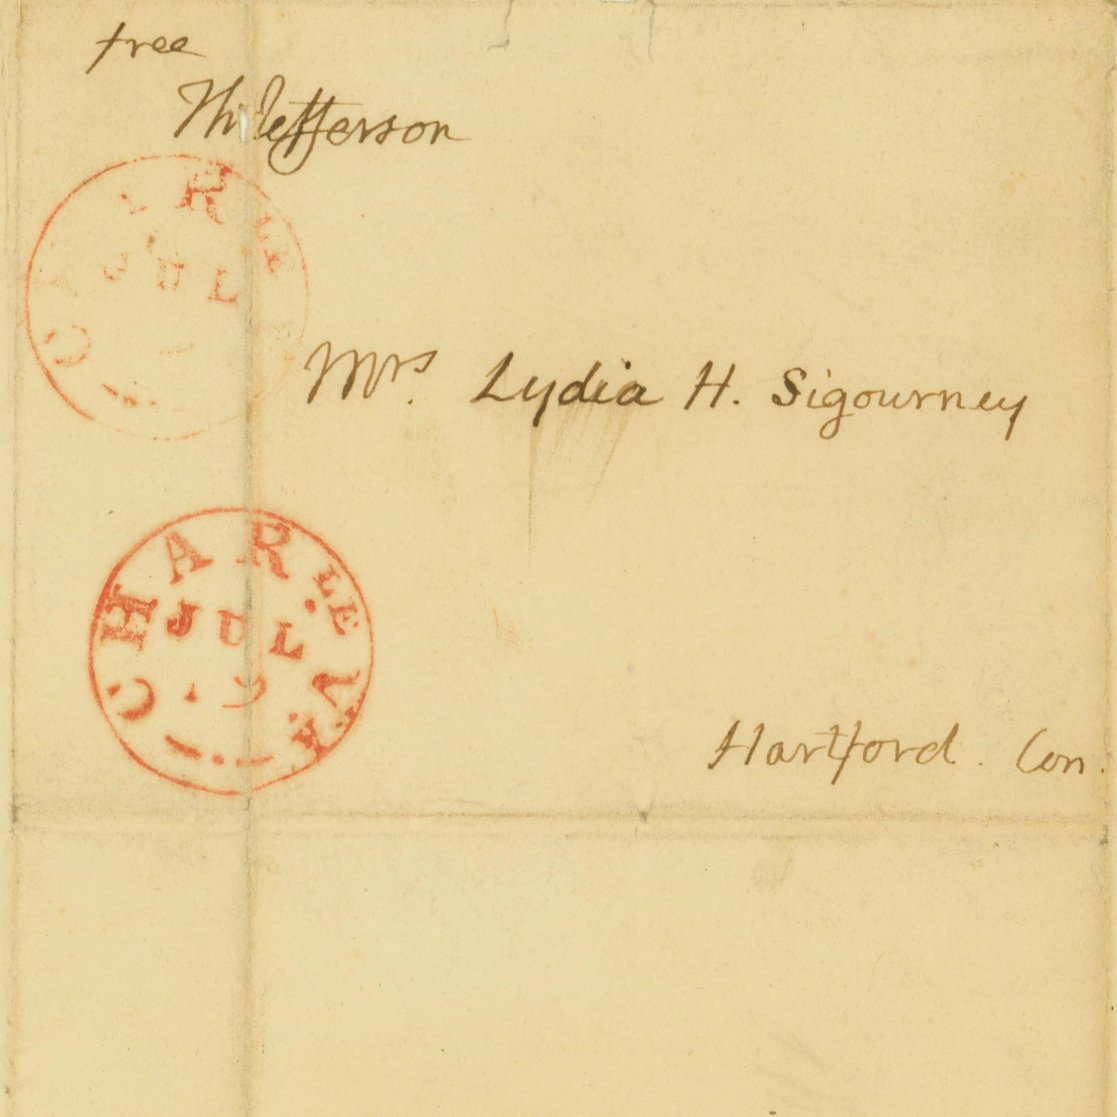 free
Th:Jefferson
R.LE
JUL
Mrs. Lydia H. Sigourney
CHAR.LE VA
JUL
Hartford. Con.